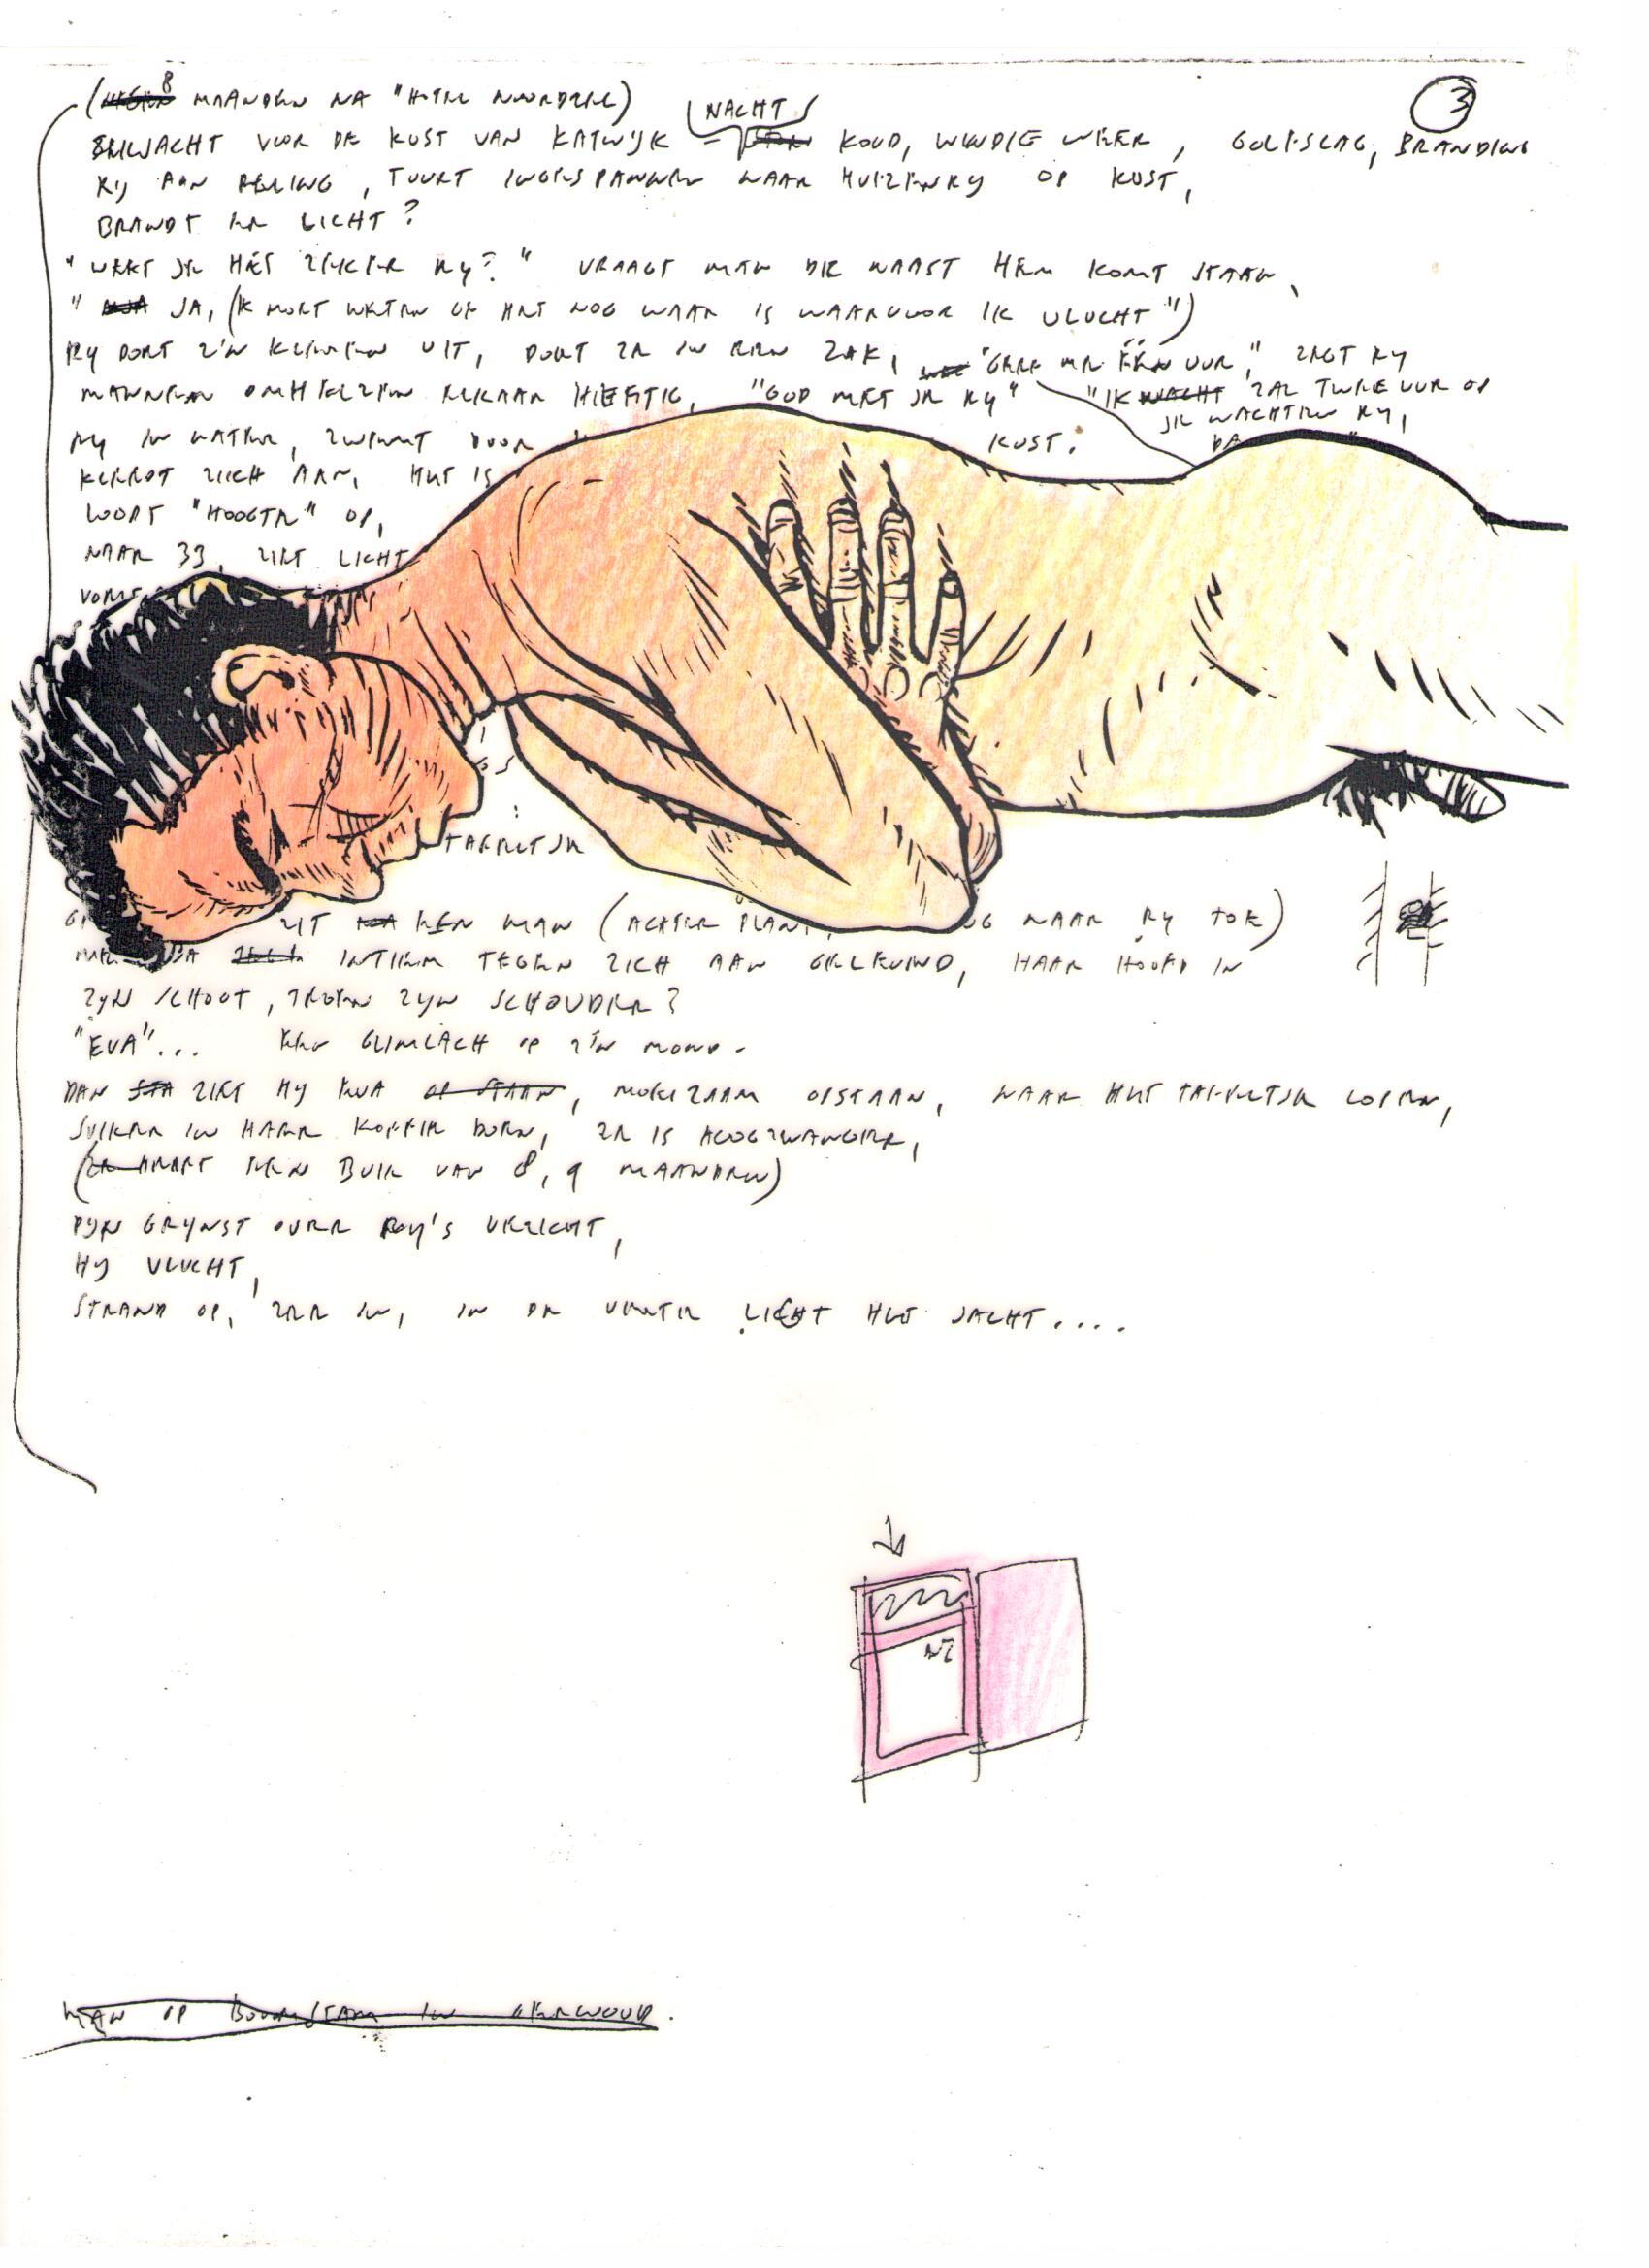 3
8 MAANDEN NA "HOTEL NOORDZEE)
NACHT
ZEEJACHT VOOR DE KUST VAN KATWIJK - KOUD, WINDIG WEER, GOLFSLAG, BRANDING
RY AAN RELING, TUURT INGESPANNEN NAAR HUIZENRY OP KUST,
BRANDT ER LICHT?
"WEET JE HET ZEKER RY?" VRAAGT MAN DIE NAAST HEM KOMT STAAN,
" JA, (IK MOET WETEN OF HET NOG WAAR IS WAARVOOR IK VLUCHT")
RY DOET Z'N KLEREN UIT, DOET ZE IN EEN ZAK, "GEEF ME ÉÉN UUR," ZEGT RY
MANNEN OMHELZEN ELKAAR HEFTIG, "GOD MET JE RY" "IK ZAL TWEE UUR OP
JE WACHTEN RY,
RY IN WATER, ZWEMT DOOR KUST.
KLEEDT ZICH AAN, HET IS
LOOPT "HOOGTE" OP,
NAAR 33, ZIET LICHT
TAFELTJE
ZIT EEN MAN (ACHTER PLANT, NAAR RY TOE)
INTIEM TEGEN ZICH AAN GELEUND, HAAR HOOFD IN
ZYN SCHOOT, TEGEN ZYN SCHOUDER?
"EVA"... EEN GLIMLACH OP Z'N MOND -
DAN ZIET HY EVA OP STAAN, MOEIZAAM OPSTAAN, NAAR HET TAFELTJE LOPEN,
SUIKER IN HAAR KOFFIE DOEN, ZE IS HOOGZWANGER,
(ZE HEEFT EEN BUIK VAN 8, 9 MAANDEN)
PYN GRYNST OVER RY'S GEZICHT,
HY VLUCHT,
STRAND OP, ZEE IN, IN DE VERTE LIGHT HET JACHT....
NZ
MAN OP BOOMSTAM IN OERWOUD.